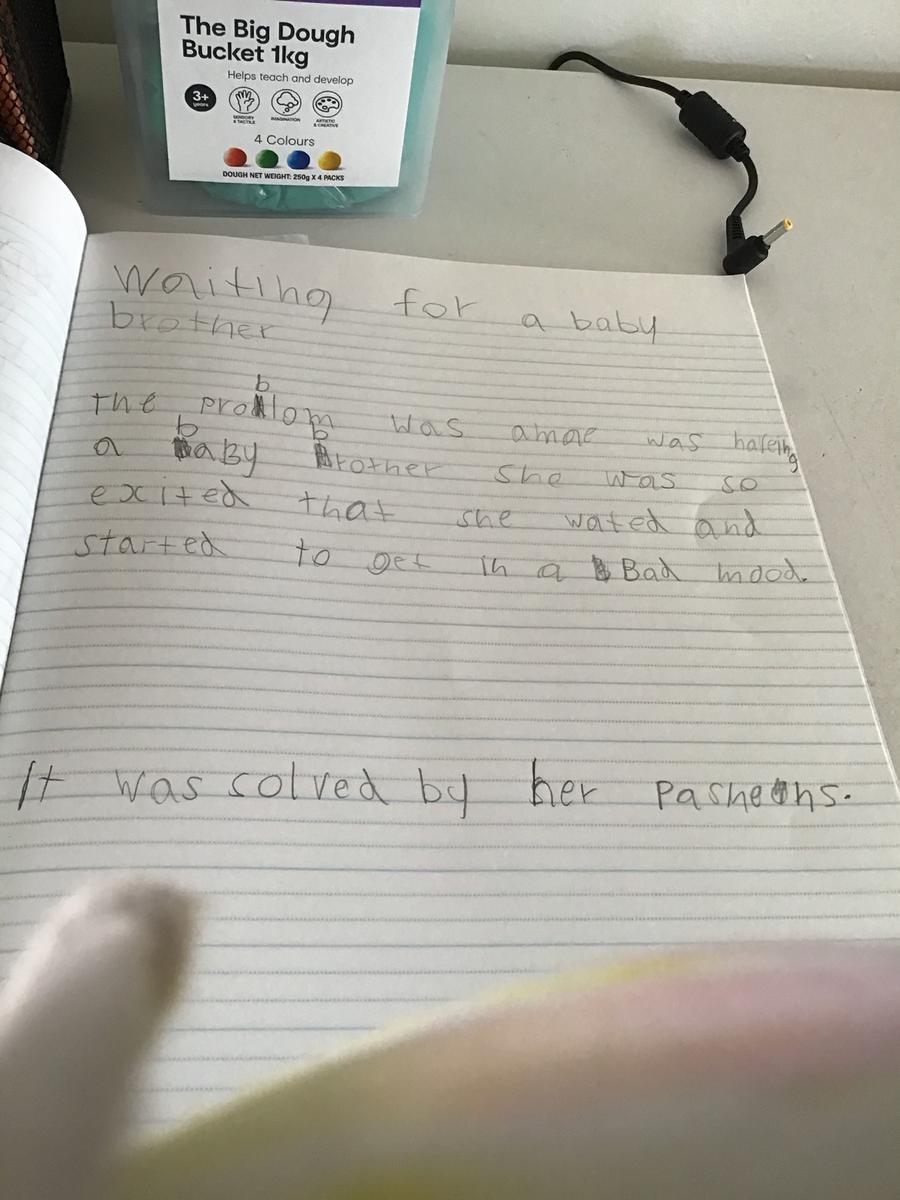 The Big Dough
Bucket 1kg
Helps teach and develop
3+
years
SENSORY
& TACTILE
IMAGINATION
ARTISTIC
& CREATIVE
4 Colours
DOUGH NET WEIGHT: 250g X 4 PACKS
Waiting for a baby
brother
The problom was amae was hafeing
a baby brother she was so
excited that she wated and
started to get in a Bad mood.
It was solved by her pashens.